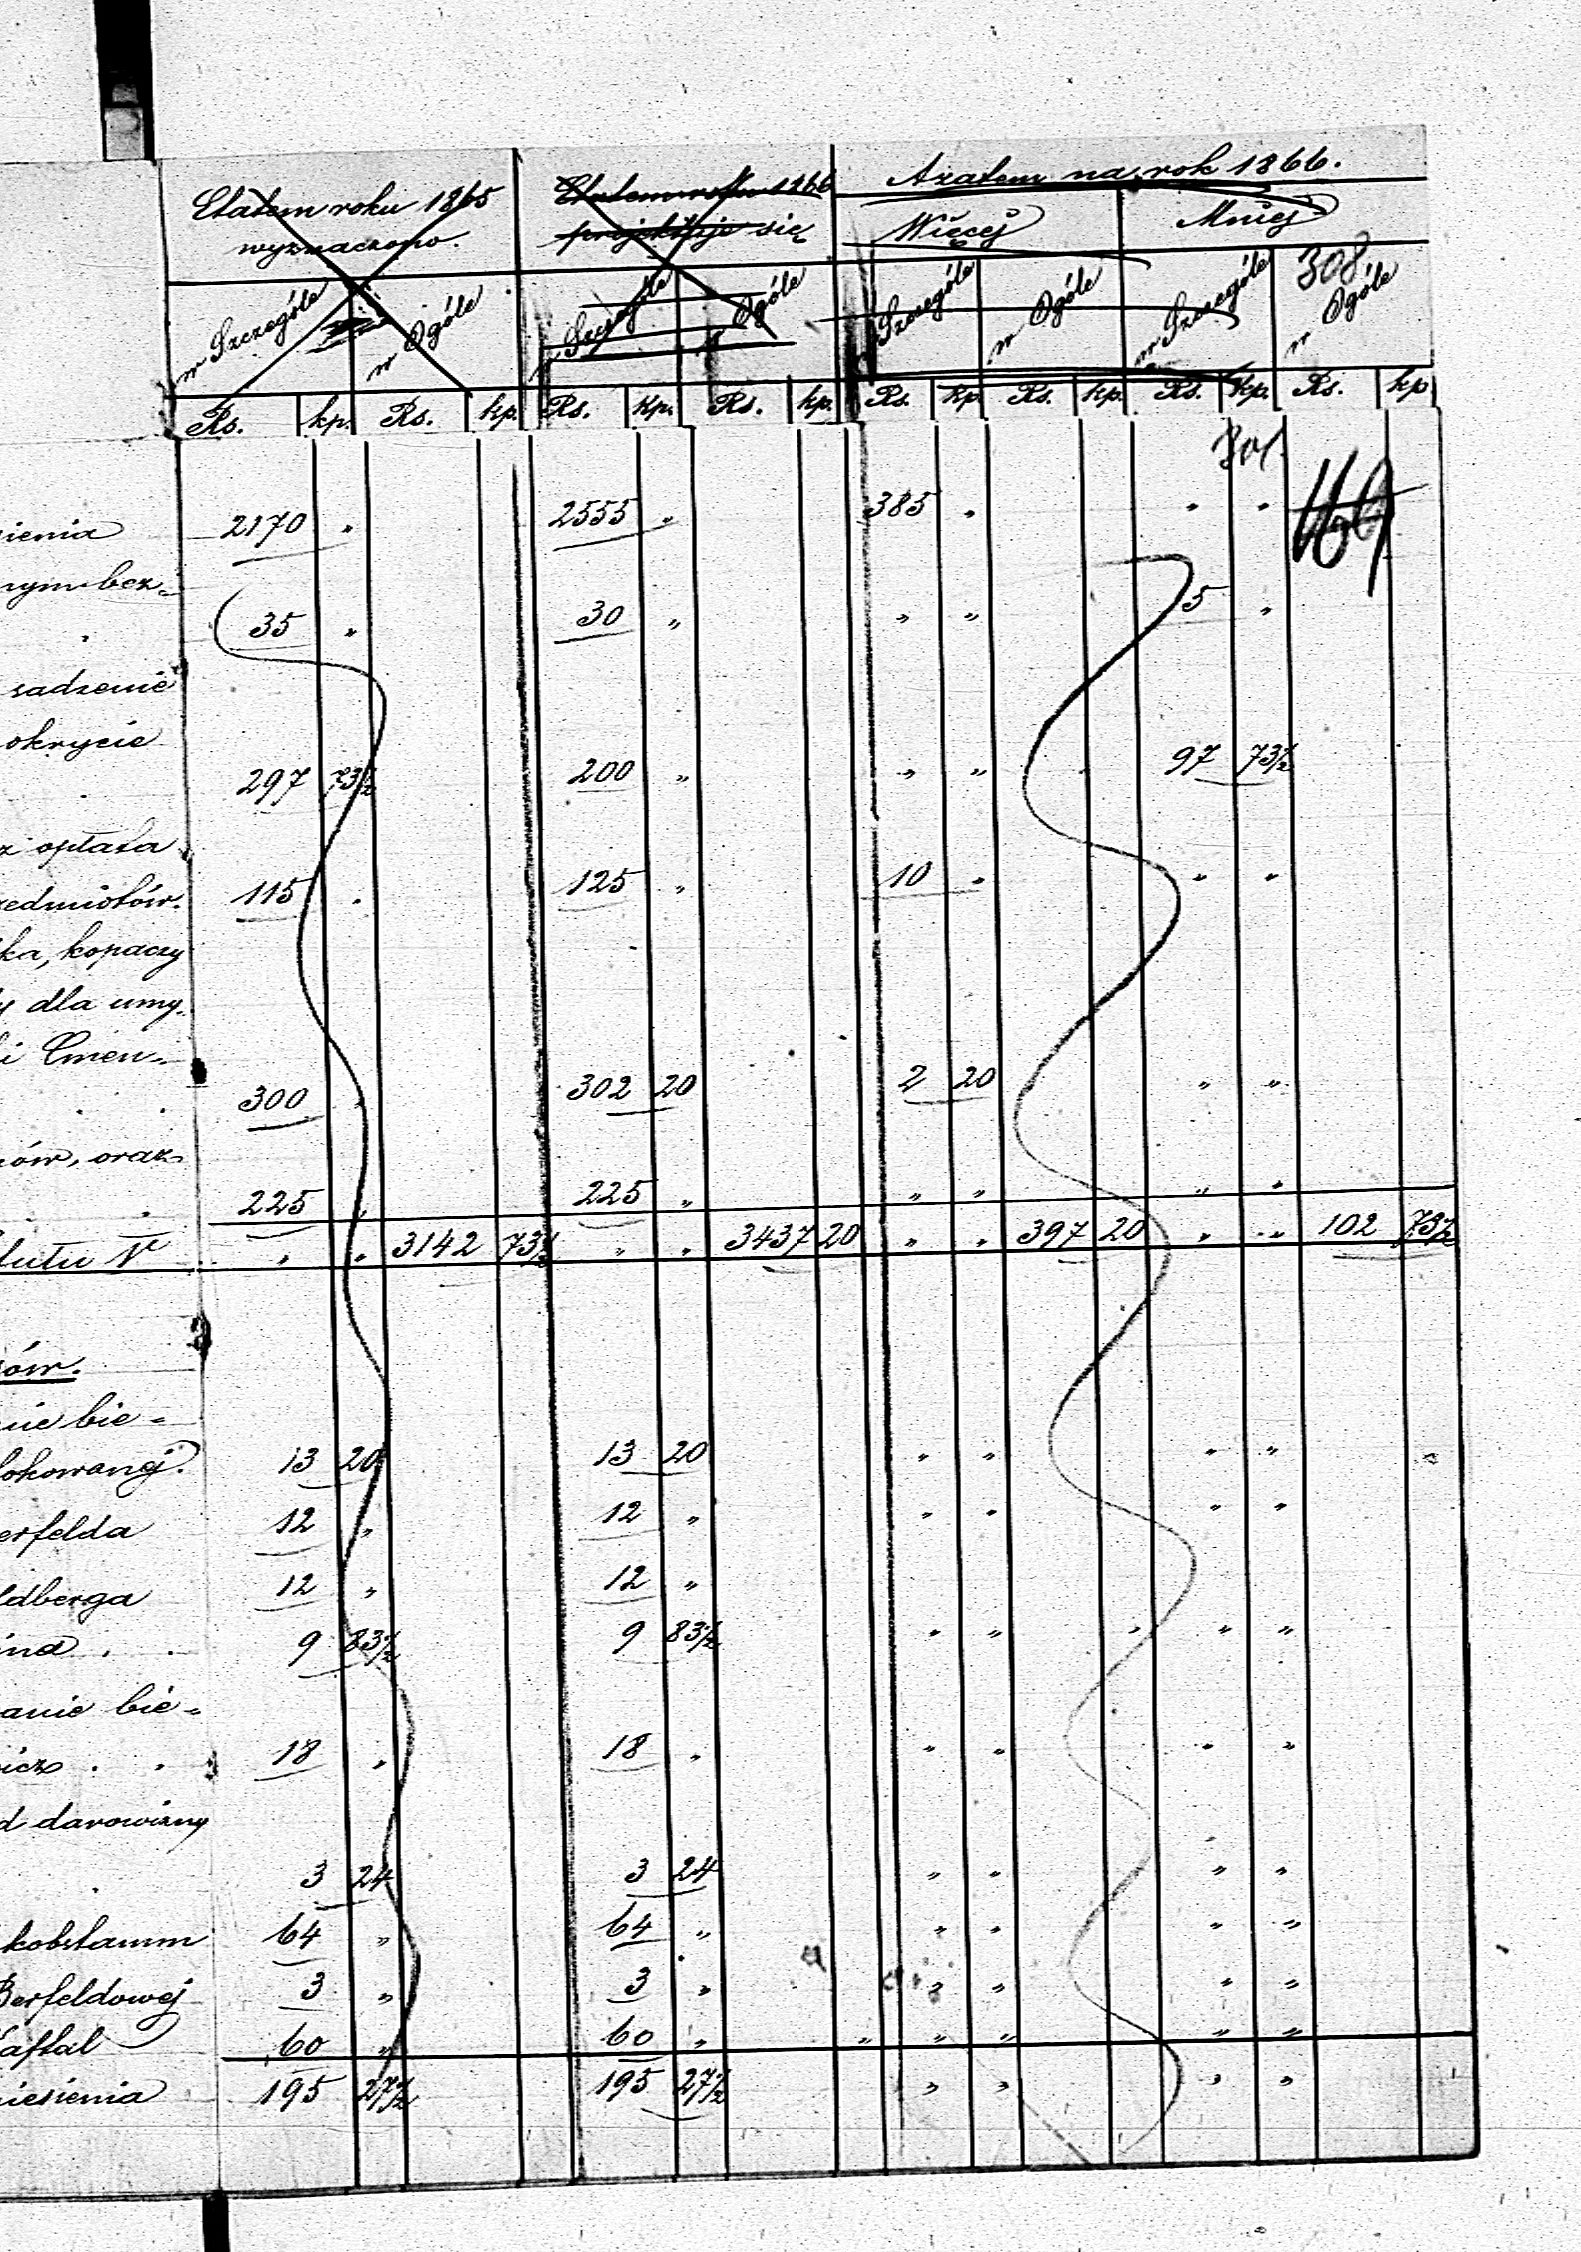 Etatem roku 1865 Etatem roku 1866 Azatem na rok 1866.
wyznaczono. projektuje się Więcej Mniej
308
w Szczególe w Ogóle w Szczególe w Ogóle w Szczególe w Ogóle w Szczególe w Ogóle
Rs. kp. Rs. kp. Rs. kp. Rs. kp. Rs. kp. Rs. kp. Rs. kp. Rs. kp
301.
sienia 2170 " 2555 " 385 " " "
nym bez=
" 35 " 30 " " " 5 "
sadzenie
okrycie
297 73½ 200 " " " 97 73½
z opłata
zedmiotów. 115 " 125 " 10 " " "
ka, kopaczy
y dla umy.
i Cmen=
300 " 302 20 2 20 " "
ów, oraz
225 " 225 " " " " "
tutu V " " 3142 73½ " " 3437 20 " " 397 20 " " 102 73½
ów.
nie bie=
lokowanej. 13 20 13 20 " " " "
erfelda 12 " 12 " " " " "
ldberga 12 " 12 "
ina . . 9 83½ 9 83½ " " " "
anie bie=
icz . . 18 " 18 " " " " "
d darowizny
3 24 3 24 " " " "
kobstamm 64 " 64 " " " " "
Berfeldowej 3 " 3 " " " " "
aftal 60 " 60 " " " " " "
niesienia 195 27½ 195 27½ " " " "